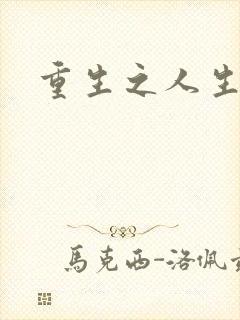 重生之人生
馬克西-洛佩